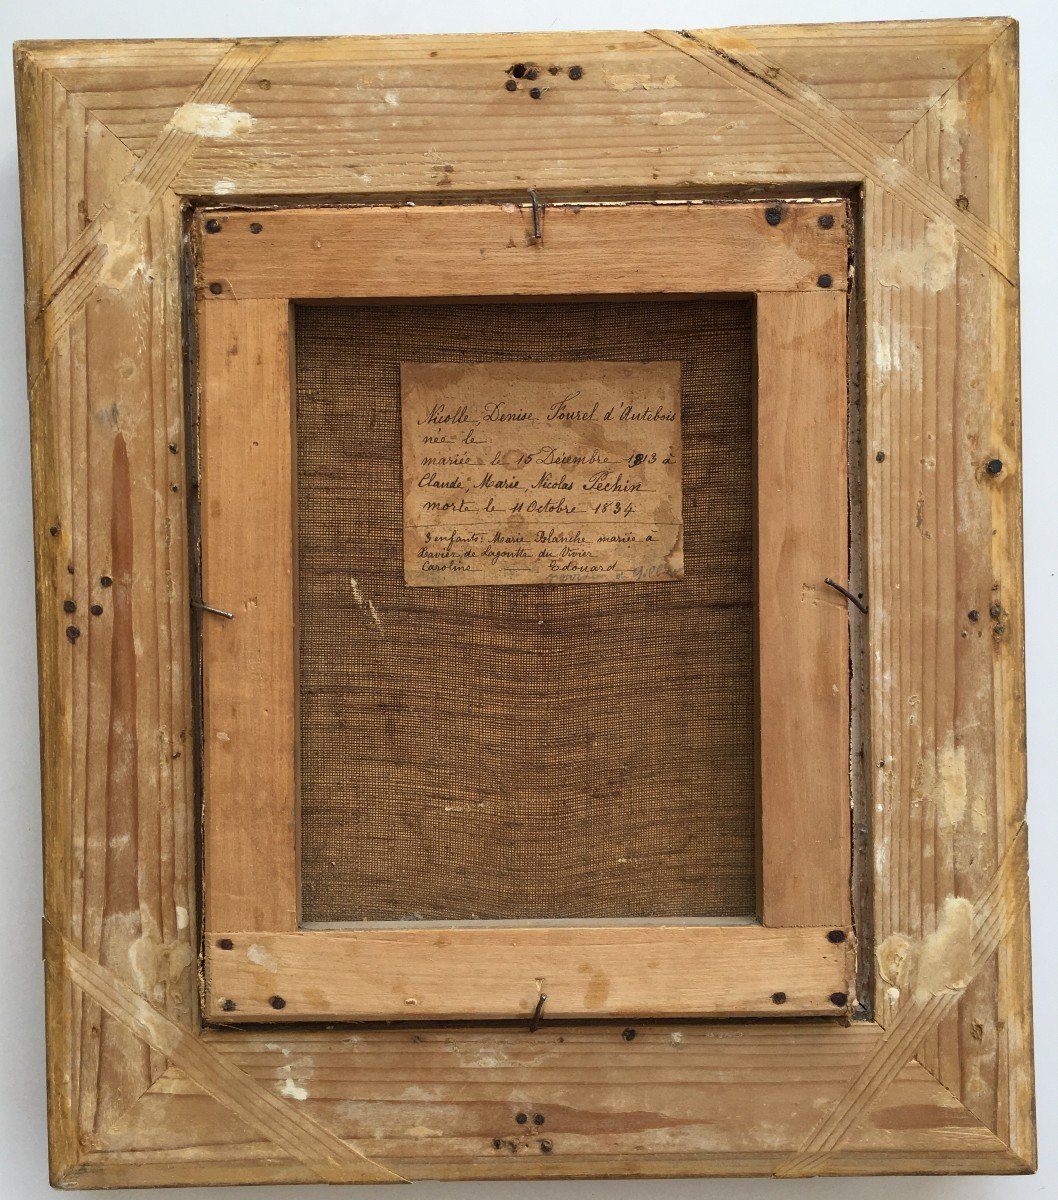 Nicolle, Denise Fourel d'Autebois
née le
mariée le 15 Décembre 1813 à
Claude, Marie, Nicolas Péchin
morte le 11 Octobre 1834
3 enfants: Marie Blanche mariée à
Xavier de Lagoutte du Vivier
Caroline — Edouard —